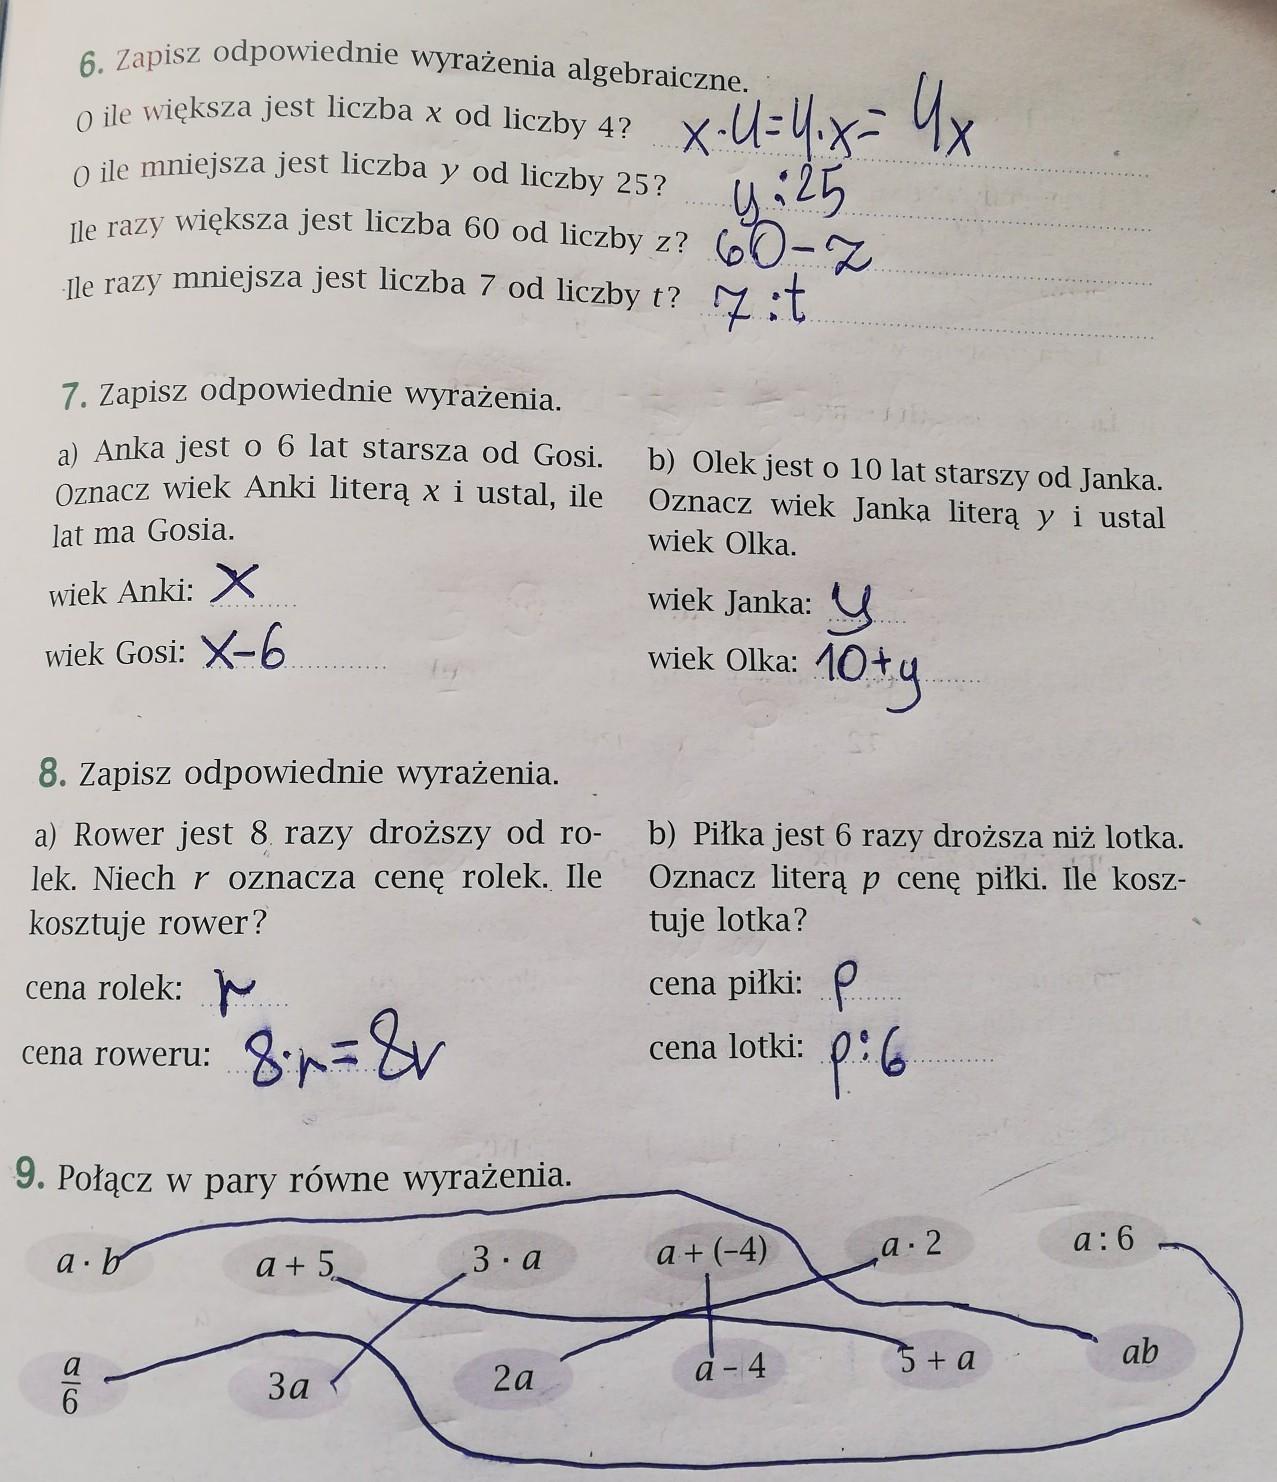 6. Zapisz odpowiednie wyrażenia algebraiczne.
O ile większa jest liczba x od liczby 4? x·4=4·x=4x
O ile mniejsza jest liczba y od liczby 25? y:25
Ile razy większa jest liczba 60 od liczby z? 60-z
Ile razy mniejsza jest liczba 7 od liczby t? 7:t
7. Zapisz odpowiednie wyrażenia.
a) Anka jest o 6 lat starsza od Gosi.
Oznacz wiek Anki literą x i ustal, ile
lat ma Gosia.
wiek Anki: x
wiek Gosi: x-6
b) Olek jest o 10 lat starszy od Janka.
Oznacz wiek Janka literą y i ustal
wiek Olka.
wiek Janka: y
wiek Olka: 10+y
8. Zapisz odpowiednie wyrażenia.
a) Rower jest 8 razy droższy od ro-
lek. Niech r oznacza cenę rolek. Ile
kosztuje rower?
cena rolek: r
cena roweru: 8·r=8r
b) Piłka jest 6 razy droższa niż lotka.
Oznacz literą p cenę piłki. Ile kosz-
tuje lotka?
cena piłki: p
cena lotki: p:6
9. Połącz w pary równe wyrażenia.
a · b a + 5 3 · a a + (−4) a · 2 a : 6
a/6 3a 2a a − 4 5 + a ab